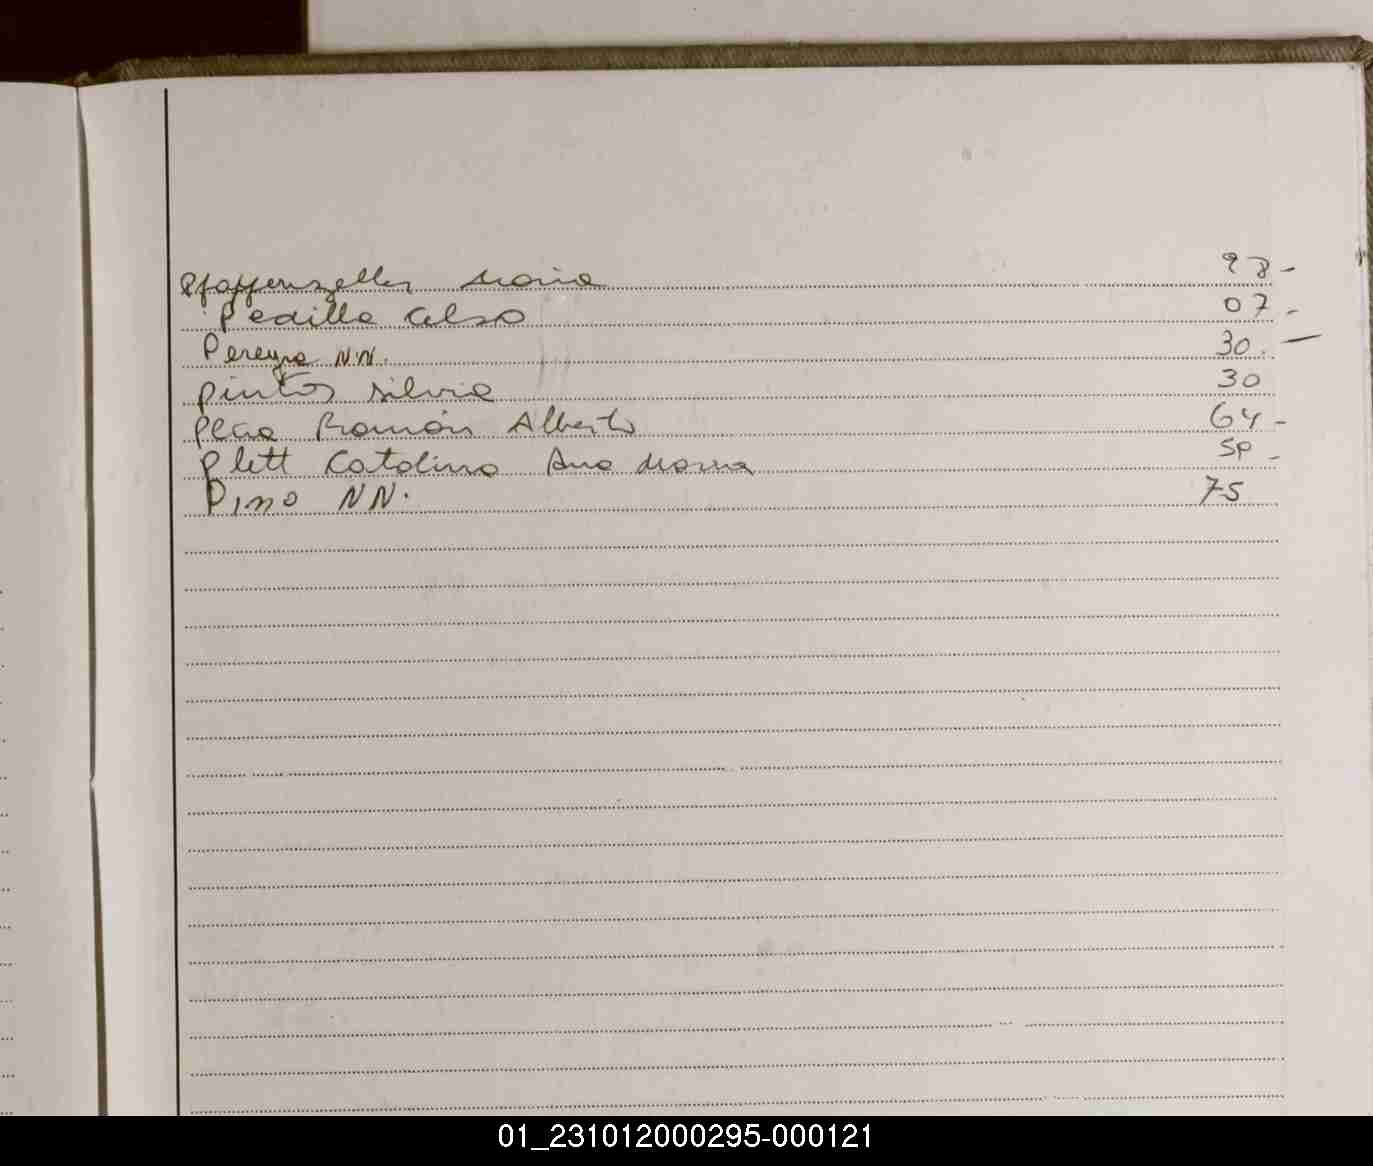 Pfaffenzeller Maria 98-
Pedilla Celso 07-
Pereyra N.N. 30. -
Pintos Silvia 30
Ramón Alberto 64-
Plett Catalina Ana Maria SP-
Pino NN. 75
01_231012000295-000121